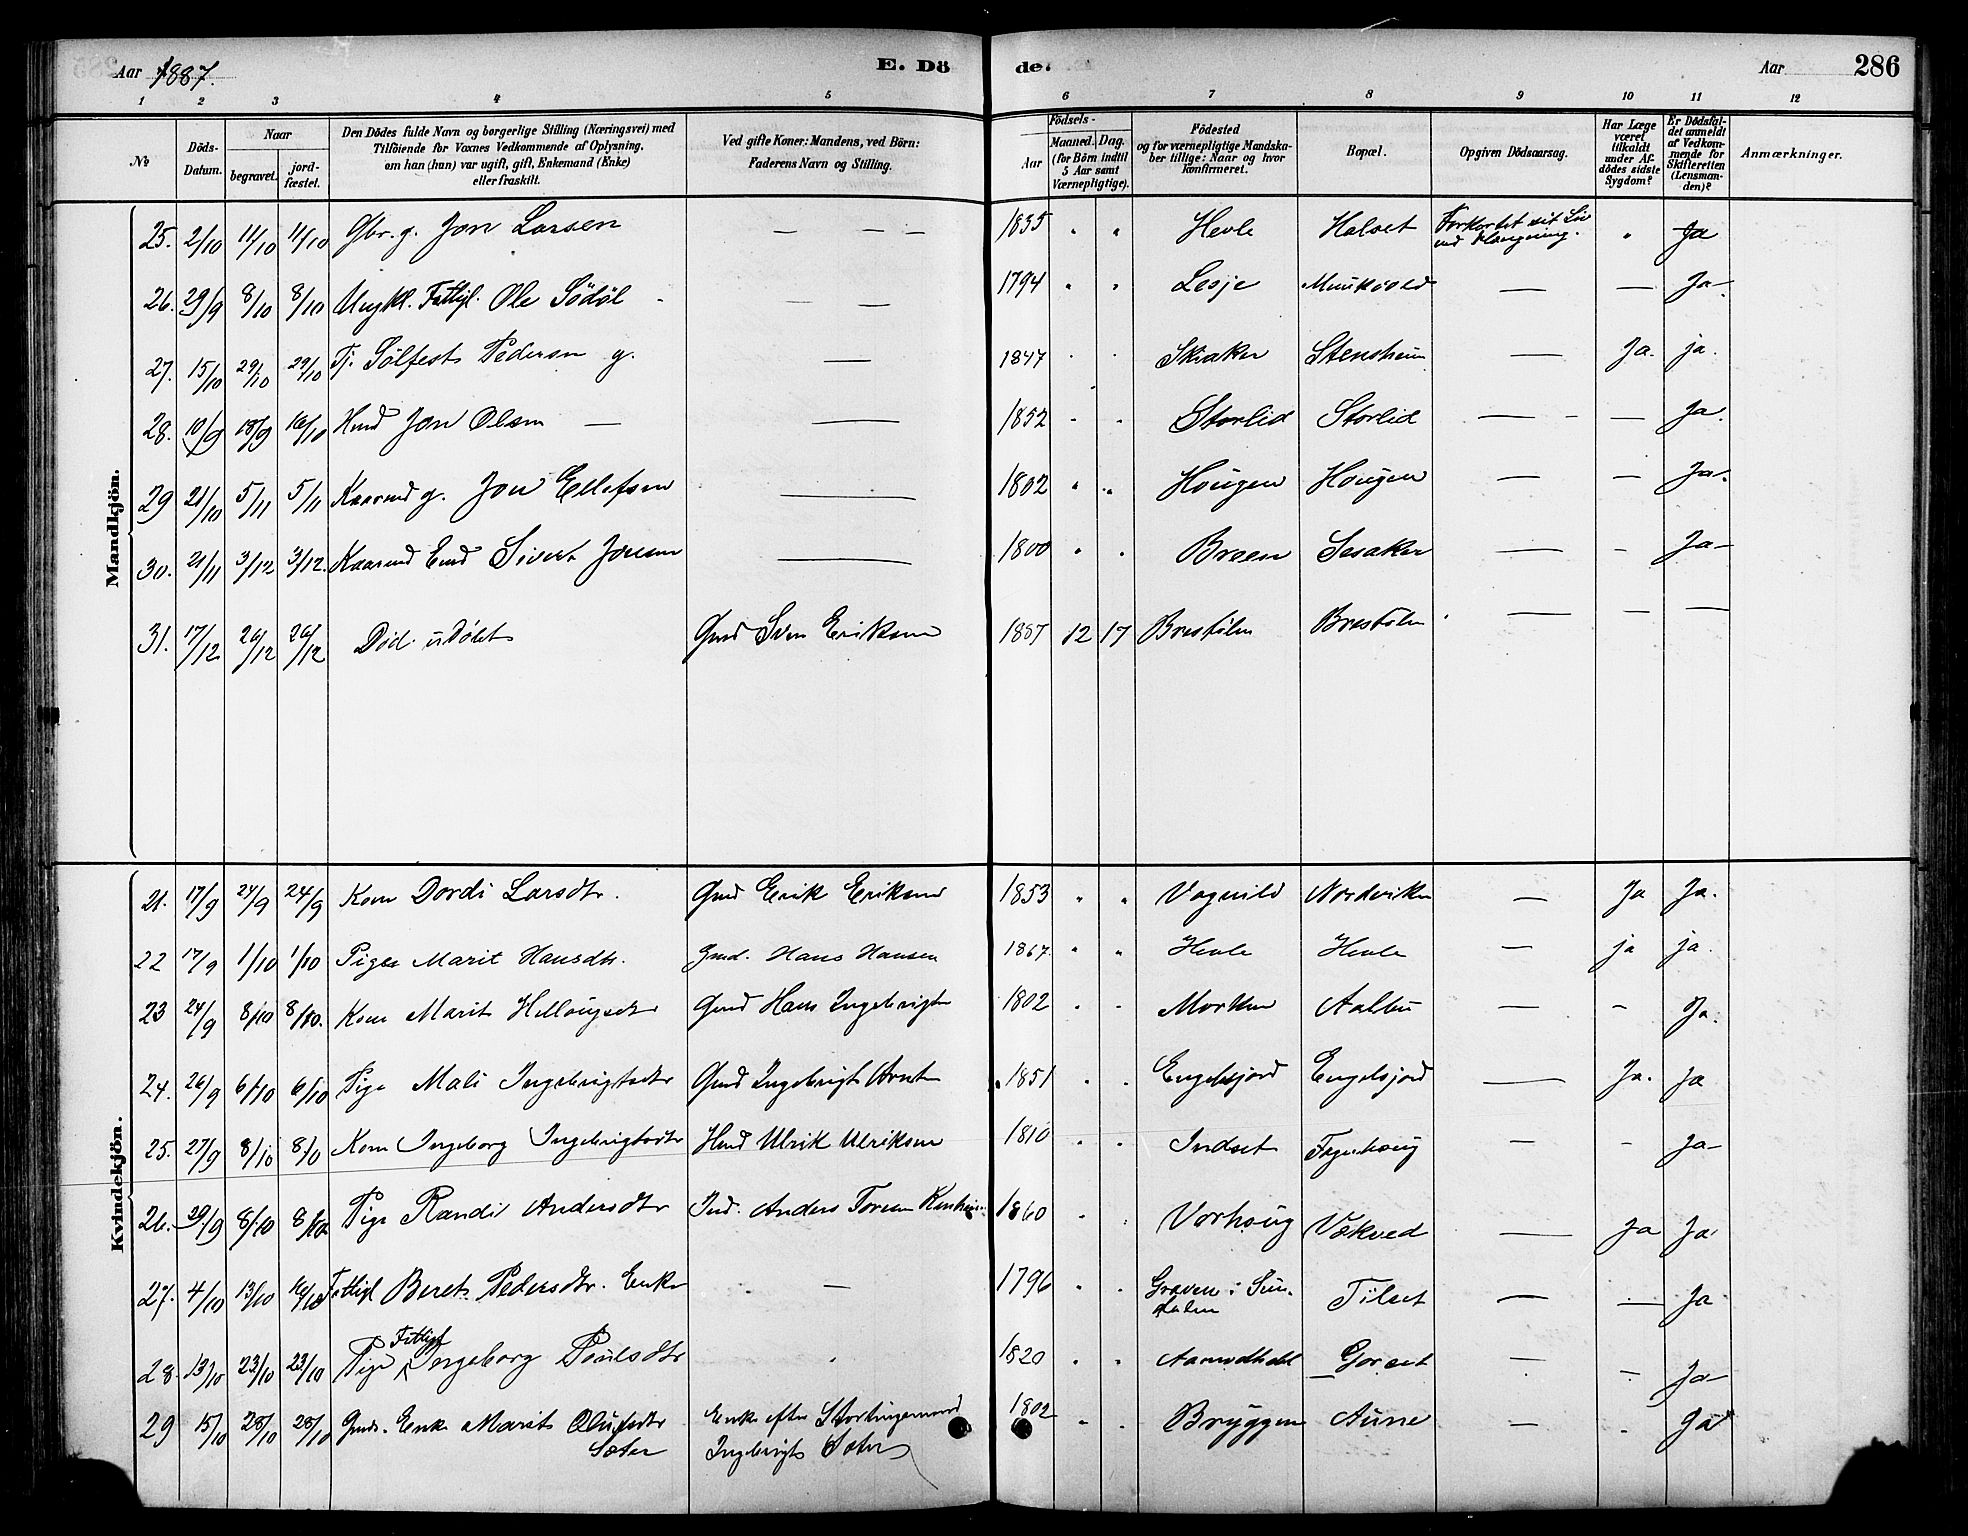 Aar 1887. E. Dö de. Aar 286
1 2 3 4 5 6 7 8 9 10 11 12
No
Döds-Datum.
Naar
begravet.
jord-fæstet.
Den Dödes fulde Navn og borgerlige Stilling (Næringsvei) med
Tilföiende for Voxnes Vedkommende af Oplysning,
om han (hun) var ugift, gift, Enkemand (Enke)
eller fraskilt.
Ved gifte Koner: Mandens, ved Börn:
Faderens Navn og Stilling.
Födsels-
Aar
Maaned. Dag.
(for Börn indtil
5 Aar samt
Værnepligtige).
Födested
og for værnepligtige Mandska-
ber tillige: Naar og hvor
konfirmeret.
Bopæl.
Opgiven Dödsaarsag.
Har Læge
været
tilkaldt
under Af-
dödes sidste
Sygdom?
Er Dödsfal-
det anmeldt
af Vedkom-
mende for
Skifteretten
(Lensman-
den)?
Anmærkninger.
Mandkjön.
25. 2/10 11/10 11/10 Gbr. g. Jon Larsen — — — 1835 " " Hevle Halset Forkortet sit Liv ved Hængning. " Ja
26. 29/9 8/10 8/10 Ungkl. Fattigl. Ole Södöl — — 1794 " " Lesje Munkvold — — Ja
27. 15/10 29/10 29/10 Tj. Sölfest Pedersen g. — 1847 " " Skiaker Stensheim — Ja. ja.
28. 10/9 18/9 16/10 Hmd Jon Olsen — — 1852 " " Storlid Storlid — — Ja.
29 21/10 5/11 5/11 Kaarmd g. Jon Ellefsen — 1802 " " Hougen Hougen — — Ja.
30. 21/11 3/12 3/12. Kaarmd Emd Sivert Jonsen — 1800 " " Bræen Sesaker — — Ja
31. 17/12 26/12 26/12 Död. udöbt Gmd Sven Eriksen 1887 12 17 Brestölen Brestölen — — —
Kvindekjön.
21. 17/9 24/9 24/9 Kone Dordi Larsdtr. Gmd Erik Eriksen 1853 " " Vognild Nordviken — Ja Ja.
22 17/9 1/10 1/10 Pige Marit Hansdtr. Gmd. Hans Hansen 1867. " " Hevle Hevle — ja ja.
23 24/9 8/10 8/10. Kone Marit Hellougsdtr Gmd Hans Ingebrigts 1802 " " Morken Aalbu — — Ja.
24. 26/9 6/10 6/10 Pige Mali Ingebrigtsdtr Gmd Ingebrigt Arnts 1851 " " Engelsjord Engelsjord — Ja. Ja
25. 27/9 8/10 8/10 Kone Ingeborg Ingebrigtsdtr Hmd Ulrik Ulriksen 1810 " " Indset Fagerhoug — — Ja
26. 29/9 8/10 8/10 Pige Randi Andersdtr Ind. Anders Toresen 1860 " " Vorhoug Vekved — Ja Ja
27. 4/10 13/10 16/10 Fattigl Beret Pedersdtr. Enke — 1796 " " Graven i Sun-
dalen Tilset — — Ja
28. 13/10 23/10 23/10 Pige Fattigl Ingeborg Poulsdtr " 1820 " " Gorset — — Ja
29 15/10 28/10 28/10 Gmds. Enke Marit Olufsdtr
Sæter Enke efter Stortingsmand
Ingebrigt Sæter 1802 " " Bryggen Aune — " Ja